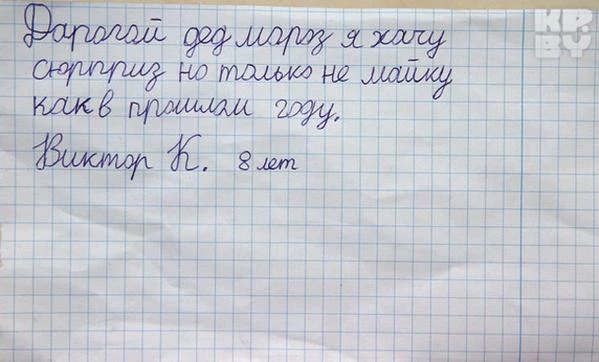 Дарагой дед мароз я хачу
сюрприз но только не майку
как в прошлам году.
Виктор К. 8 лет
KP.
BY